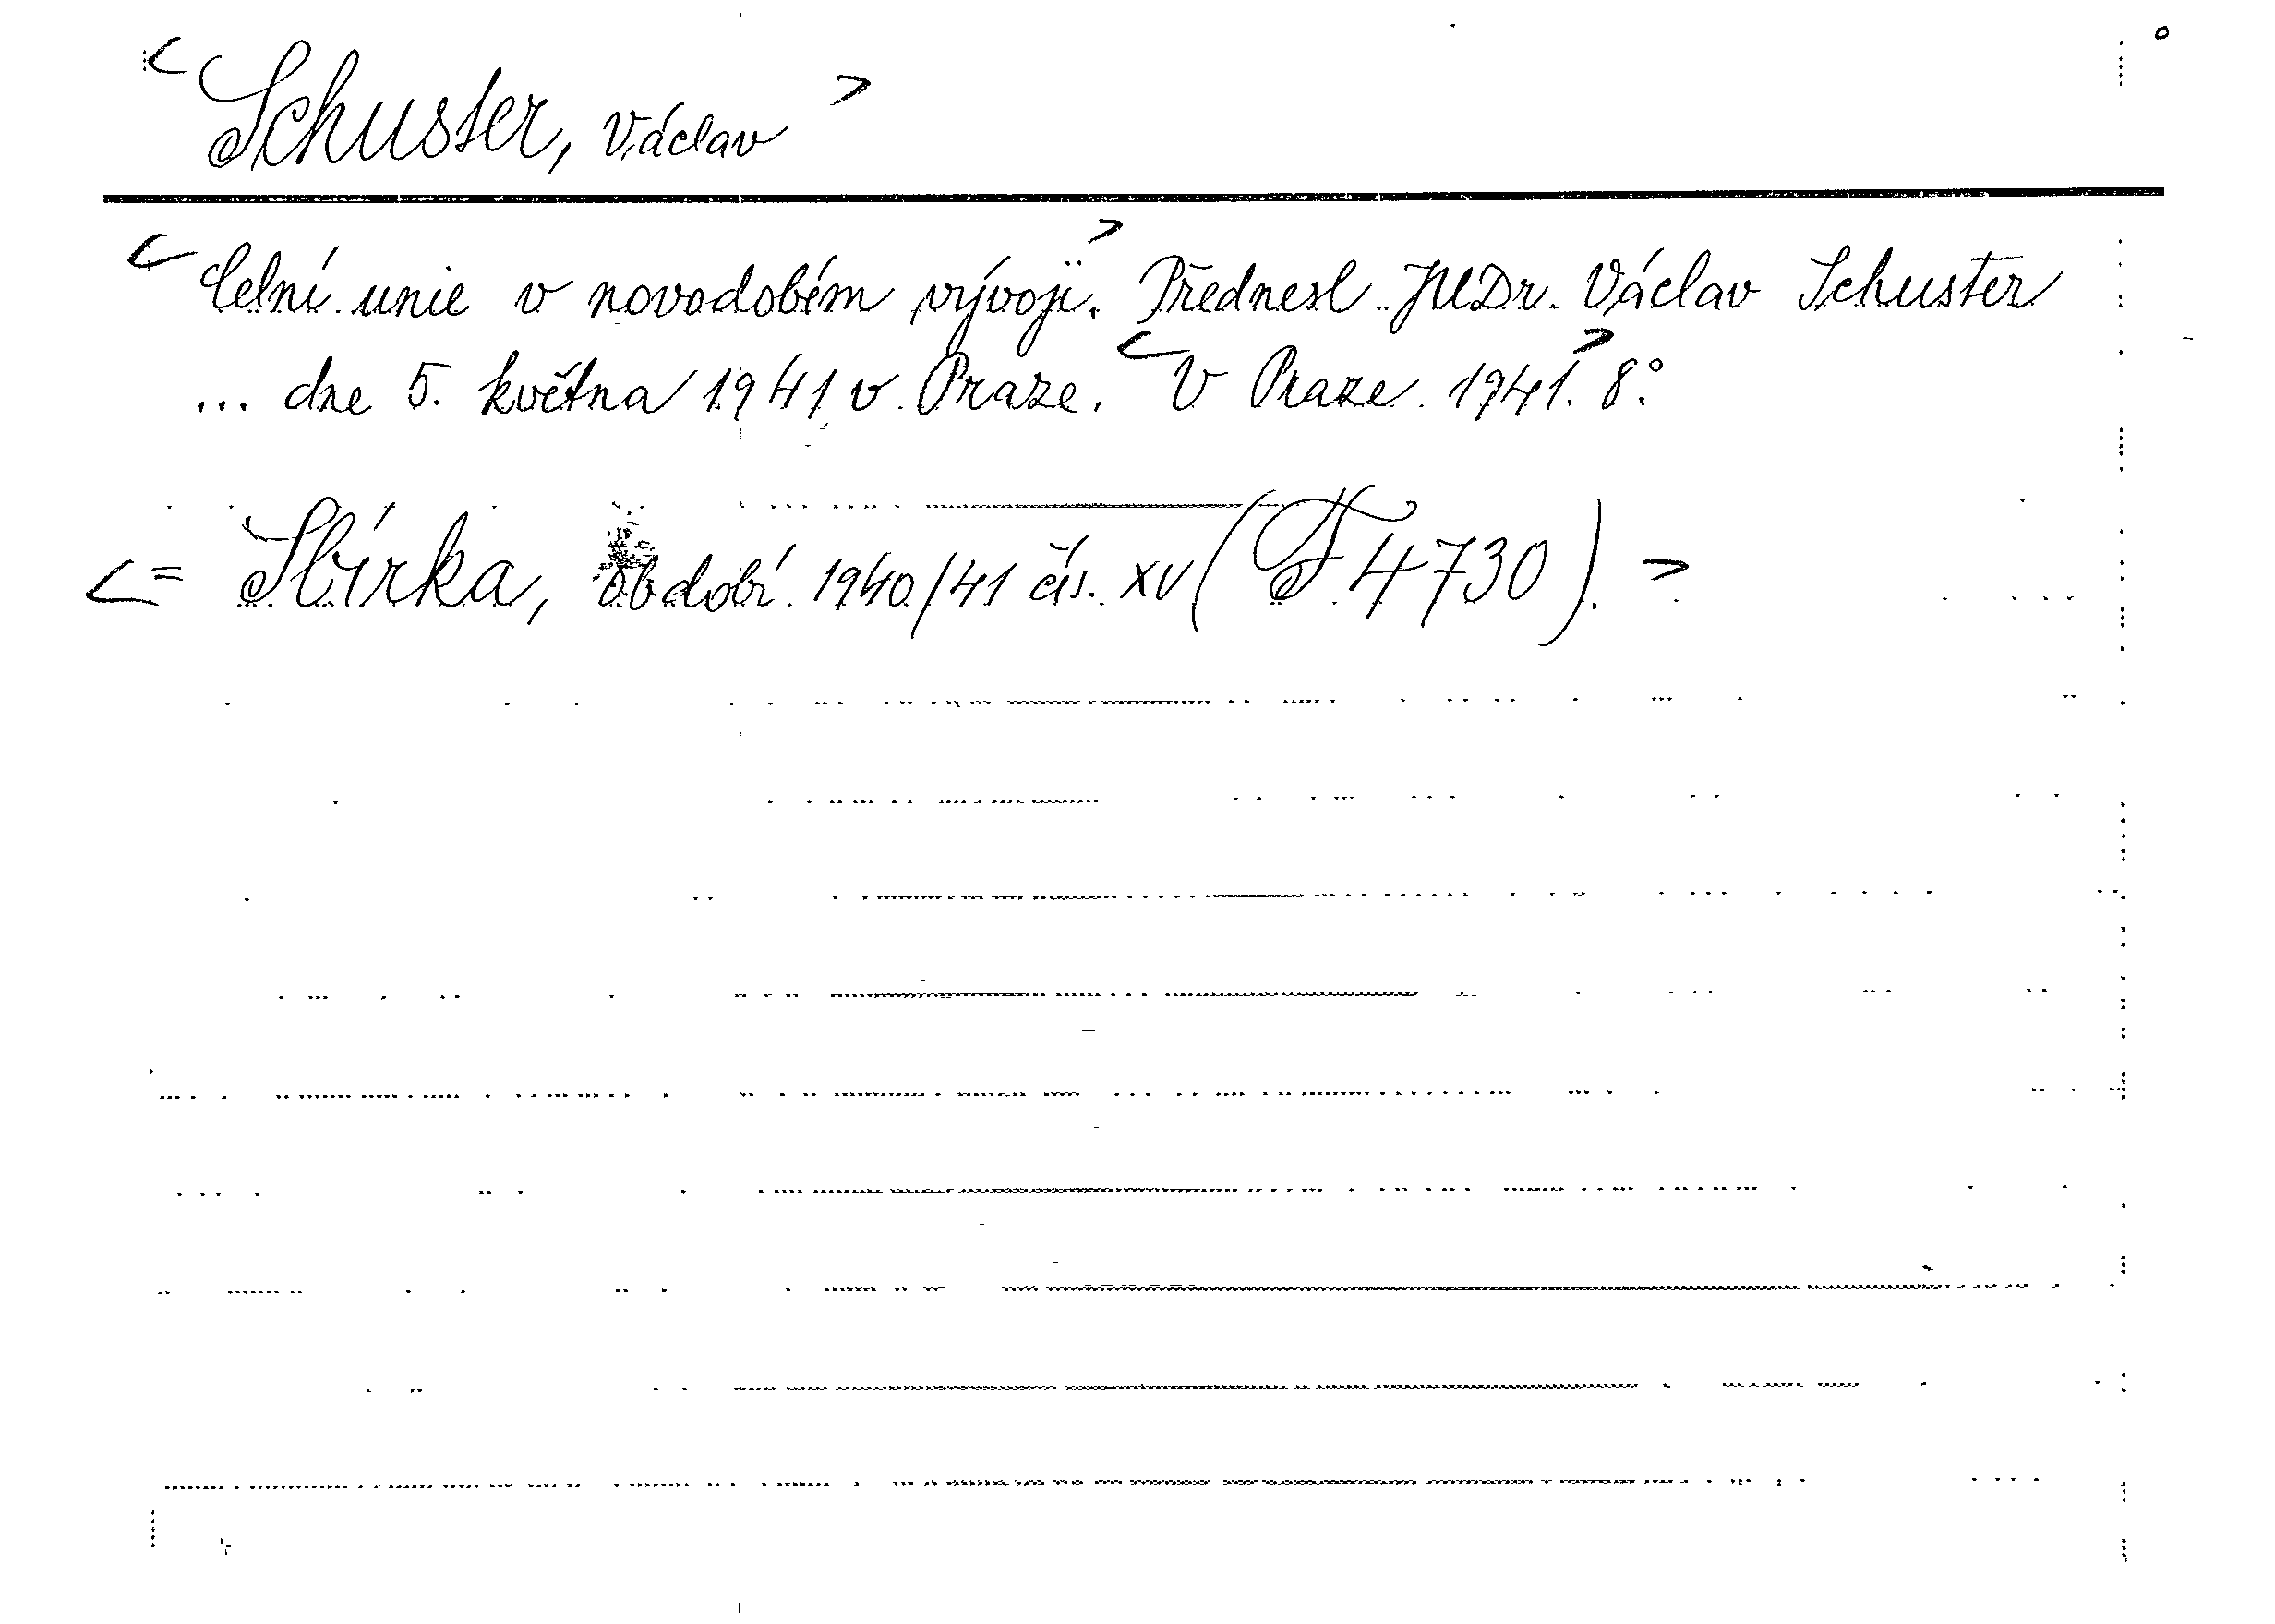 < Schuster, Václav >
< Celní unie v novodobém vývoji. > Přednesl JUDr. Václav Schuster
... dne 5. května 1941 v Praze. < V Praze 1941. > 8°.
< = Sbírka, období 1940/41 čís. XV (F 4730). >